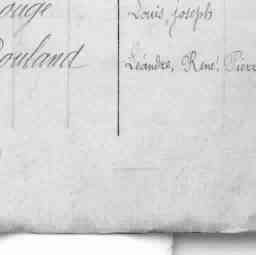 ouge Louis, joseph
Rouland Léandre, René, Pierr